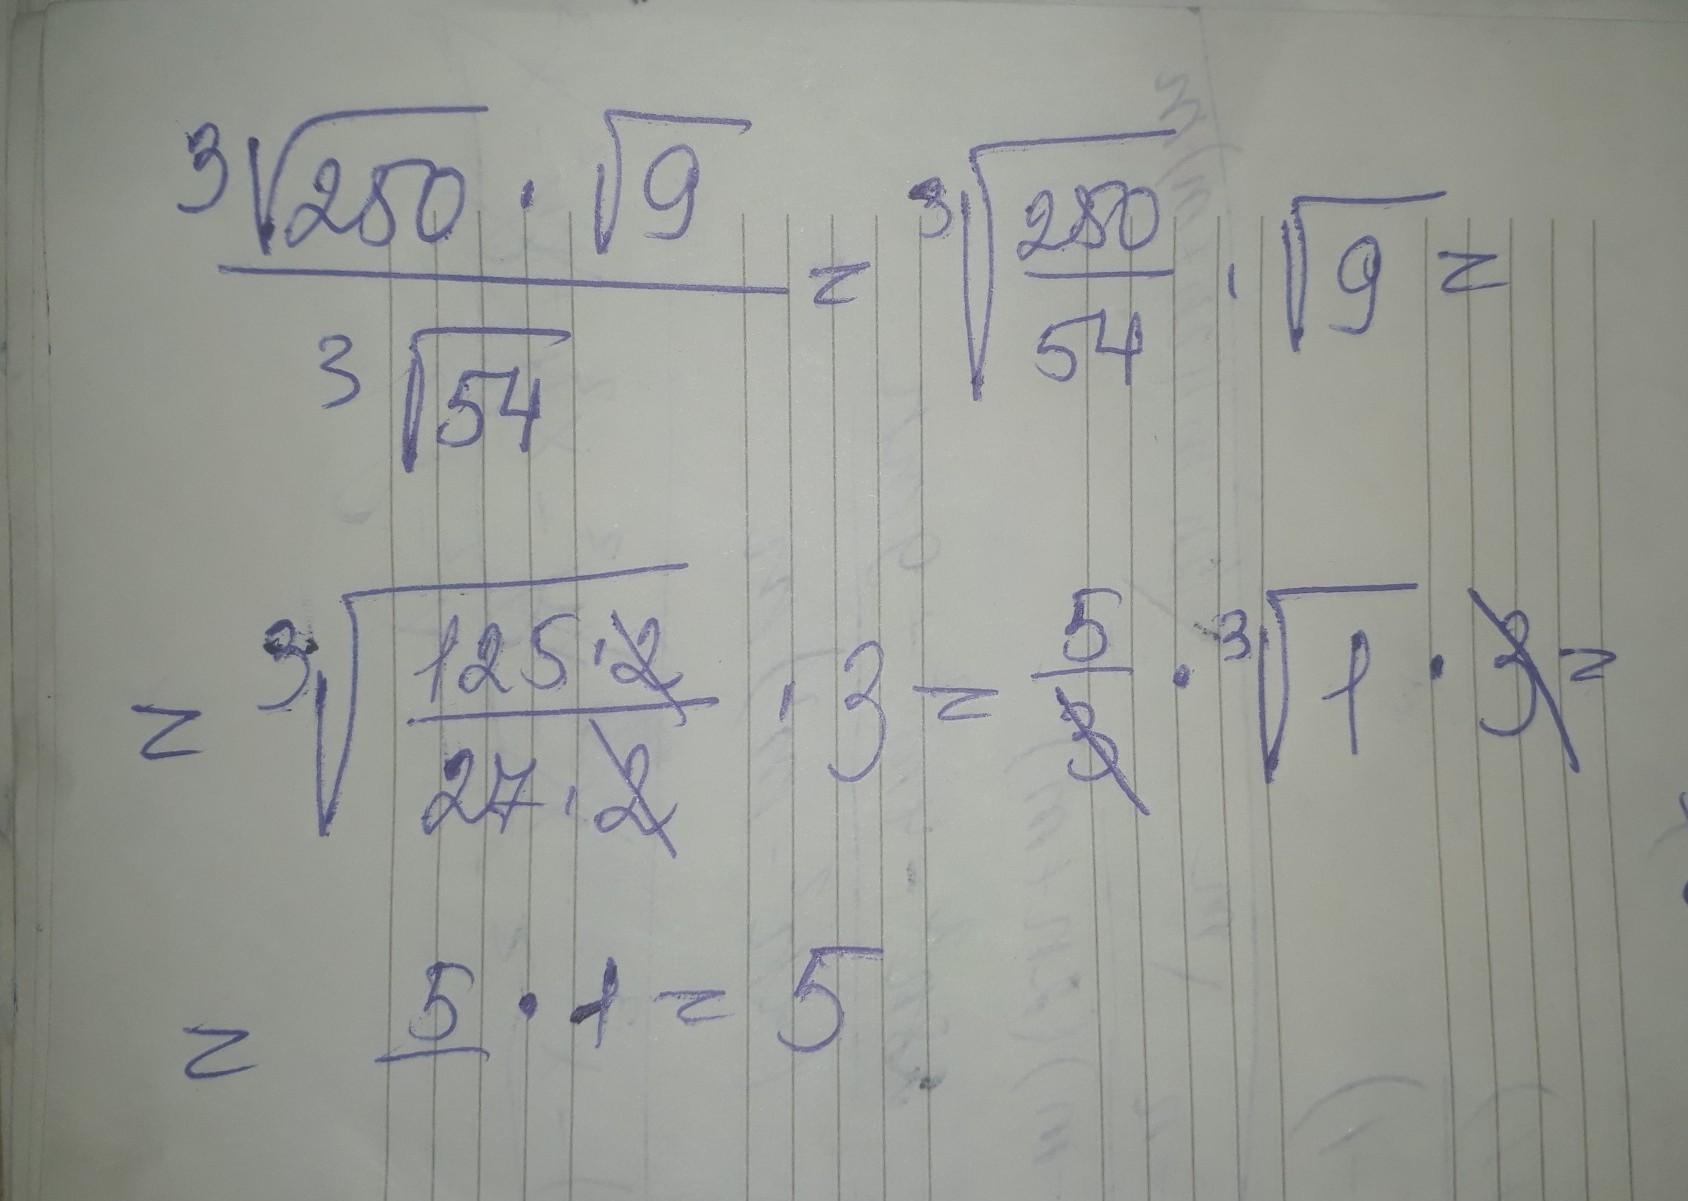 ³√250 · √9 / ³√54 = ³√(250/54) · √9 =
= ³√(125·2 / 27·2) · 3 = 5/3 · ³√1 · 3 =
= 5 · 1 = 5